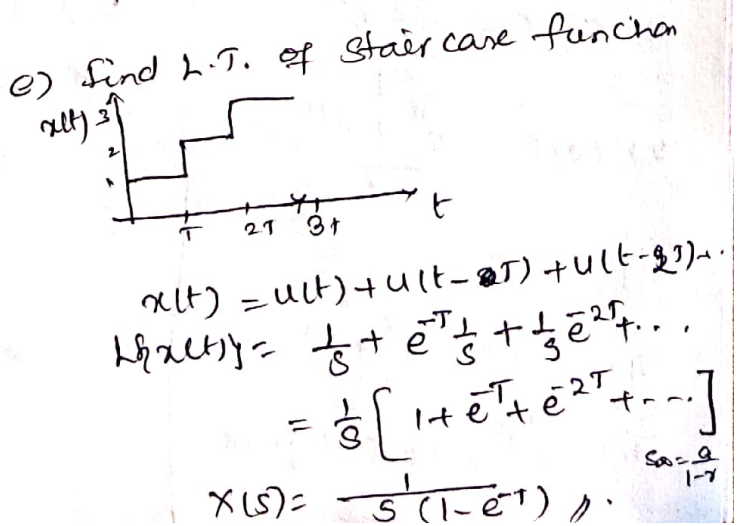 e) find L.T. of Staircase function
x(t) 3
2
1
T 2T 3T t
x(t) = u(t) + u(t-T) + u(t-2T)+..
L{x(t)} = 1/S + e^-T 1/S + 1/S e^-2T+...
= 1/S [1 + e^-T + e^-2T + ---]
S∞ = a/1-r
X(S) = 1/S (1-e^-T)